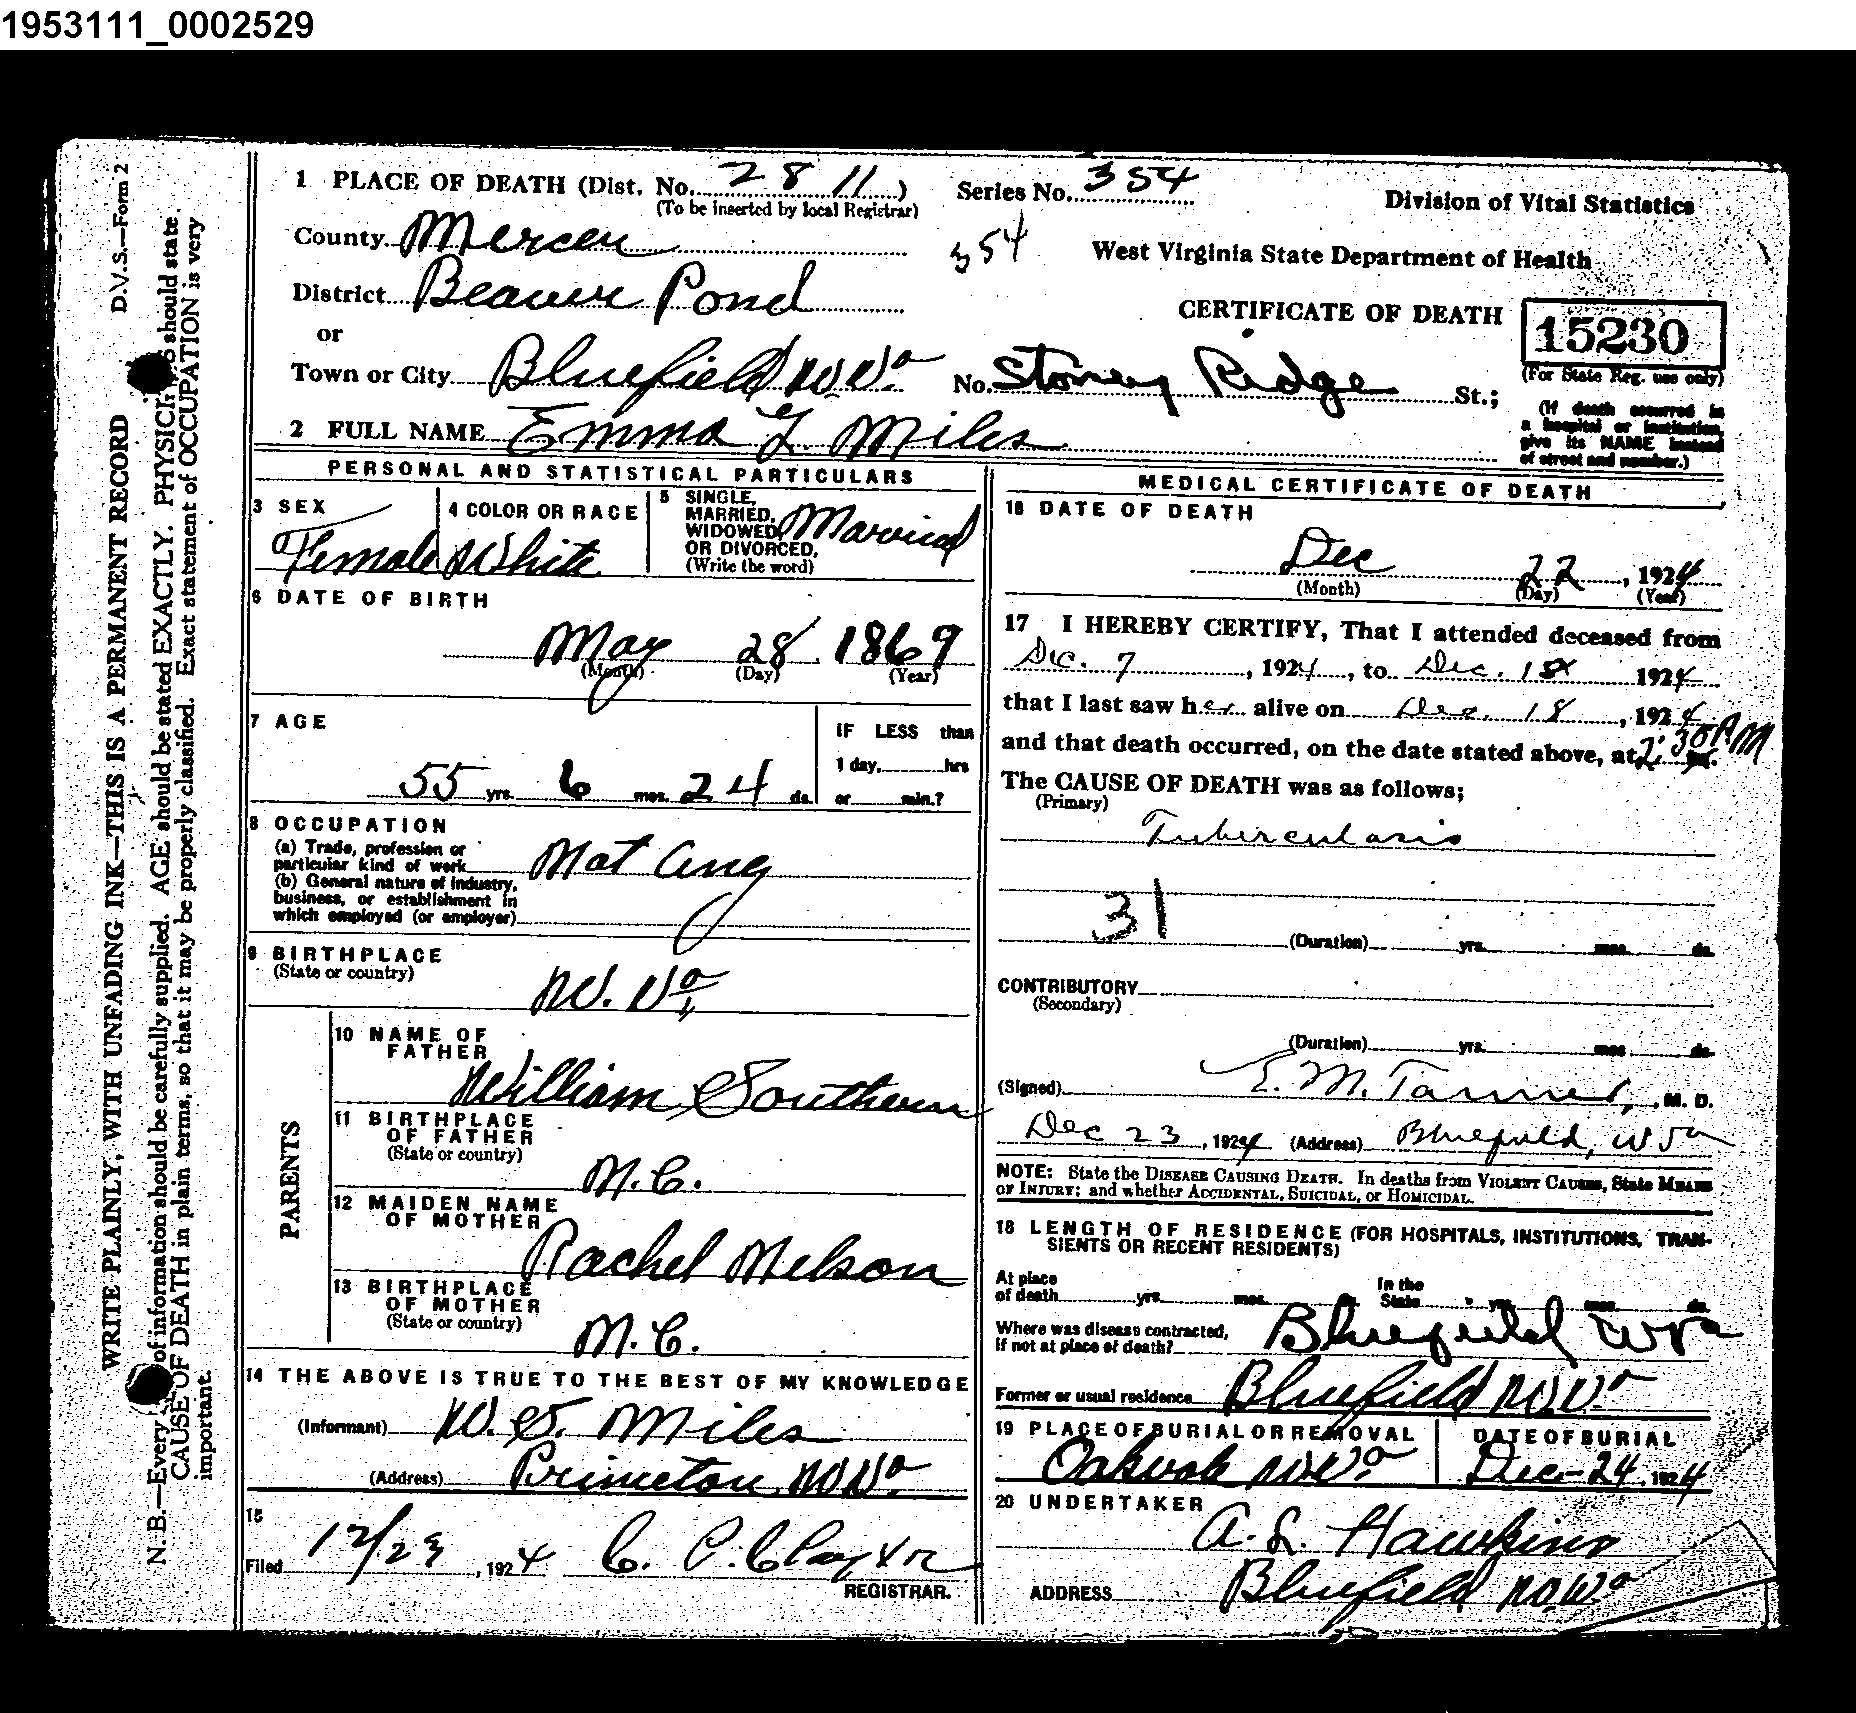 1953111_0002529
D.V.S.—Form 2
WRITE PLAINLY, WITH UNFADING INK—THIS IS A PERMANENT RECORD
N.B.—Every of information should be carefully supplied. AGE should be stated EXACTLY. PHYSICI should state
CAUSE OF DEATH in plain terms, so that it may be properly classified. Exact statement of OCCUPATION is very
important.
1 PLACE OF DEATH (Dist. No. 28 11)
(To be inserted by local Registrar)
Series No. 354
Division of Vital Statistics
County Mercer
354
West Virginia State Department of Health
District Beaver Pond
or
CERTIFICATE OF DEATH
15230
(For State Reg. use only)
Town or City Bluefield W.Va No. Stoney Ridge St.;
(If death occurred in
a hospital or institution,
give its NAME instead
of street and number.)
2 FULL NAME Emma L. Miles
PERSONAL AND STATISTICAL PARTICULARS
3 SEX
Female
4 COLOR OR RACE
White
5 SINGLE,
MARRIED,
WIDOWED,
OR DIVORCED,
(Write the word)
Married
6 DATE OF BIRTH
May 28 1869
(Month) (Day) (Year)
7 AGE
55 yrs. 6 mos. 24 ds.
IF LESS than
1 day, hrs
or min.?
8 OCCUPATION
(a) Trade, profession or
particular kind of work Not any
(b) General nature of industry,
business, or establishment in
which employed (or employer)
9 BIRTHPLACE
(State or country)
W. Va,
PARENTS
10 NAME OF
FATHER
William Southern
11 BIRTHPLACE
OF FATHER
(State or country)
N.C.
12 MAIDEN NAME
OF MOTHER
Rachel Nelson
13 BIRTHPLACE
OF MOTHER
(State or country)
N.C.
14 THE ABOVE IS TRUE TO THE BEST OF MY KNOWLEDGE
(Informant) W. S. Miles
(Address) Princeton W.Va
15
Filed 12/23, 1924 C. P. Clayton
REGISTRAR.
MEDICAL CERTIFICATE OF DEATH
16 DATE OF DEATH
Dec 22, 1924
(Month) (Day) (Year)
17 I HEREBY CERTIFY, That I attended deceased from
Dec. 7, 1924, to Dec. 18 1924
that I last saw her alive on Dec. 18, 1924
and that death occurred, on the date stated above, at 2:30 PM
The CAUSE OF DEATH was as follows;
(Primary)
Tuberculosis
31
(Duration) yrs. mos. ds.
CONTRIBUTORY
(Secondary)
(Duration) yrs. mos. ds.
(Signed) E. M. Tanner, M. D.
Dec 23, 1924 (Address) Bluefield, W Va
NOTE: State the DISEASE CAUSING DEATH. In deaths from VIOLENT CAUSES, State MEANS
OF INJURY; and whether ACCIDENTAL, SUICIDAL, or HOMICIDAL.
18 LENGTH OF RESIDENCE (FOR HOSPITALS, INSTITUTIONS, TRAN-
SIENTS OR RECENT RESIDENTS)
At place
of death yrs. mos. In the
State yrs. mos. ds.
Where was disease contracted,
if not at place of death? Bluefield W Va
Former or usual residence Bluefield W.Va
19 PLACE OF BURIAL OR REMOVAL
Oakvale W.Va
DATE OF BURIAL
Dec-24, 1924
20 UNDERTAKER
A. L. Hawkins
ADDRESS Bluefield W.Va